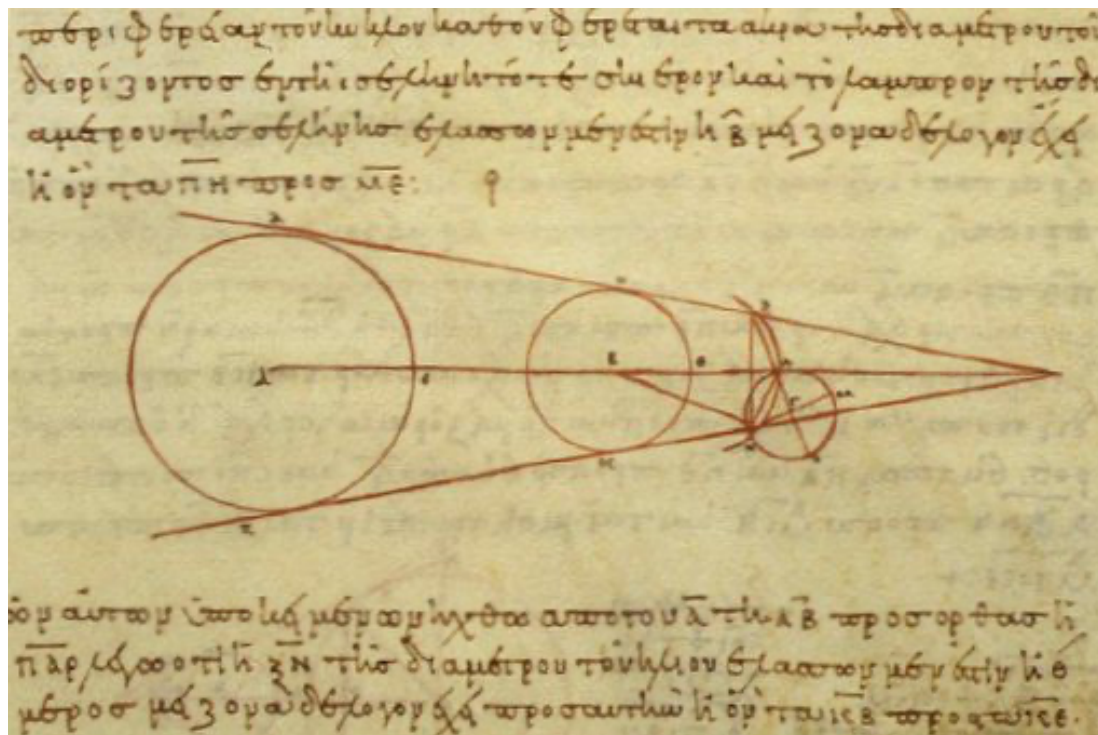 περιφέρειαν τοῦ κύκλου καθ' ὃν φέρεται τὰ ἄκρα τῆς διαμέτρου τοῦ
διορίζοντος ἐν τῆι σελήνηι τό τε σκιερὸν καὶ τὸ λαμπρὸν τῆς δι
αμέτρου τῆς σελήνης ἐλάσσων μέν ἐστιν ἢ β̄ μείζονα δὲ λόγον ἔχει
ἢ ὃν τὰ π̄η̄ πρὸς μ̄ε̄:
τῶν αὐτῶν ὑποκειμένων ἤχθω ἀπὸ τοῦ Α̅ τῆι Α̅Β̅ πρὸς ὀρθὰς ἡ
Π̅Α̅Ρ̅ λέγω ὅτι ἡ Ξ̅Ν̅ τῆς διαμέτρου τοῦ ἡλίου ἐλάσσων μέν ἐστιν ἢ θ
μέρος μείζονα δὲ λόγον ἔχει πρὸς αὐτὴν ἢ ὃν τὰ κ̅β̅ πρὸς